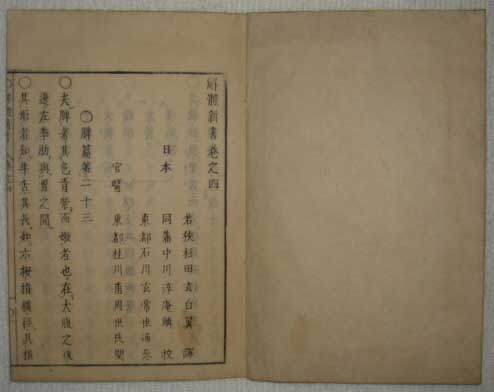 解體新書卷之四
若狹杉田玄白翼 譯
日本 同藩中川淳庵鱗 校
東都石川玄常世通 參
官醫 東都桂川甫周世民 閱
○脾篇第二十三
○夫脾者其色青紫而緻者也在大腹之後
邊左季肋與胃之間
○其形者如牛舌其長如六拇指橫徑其橫